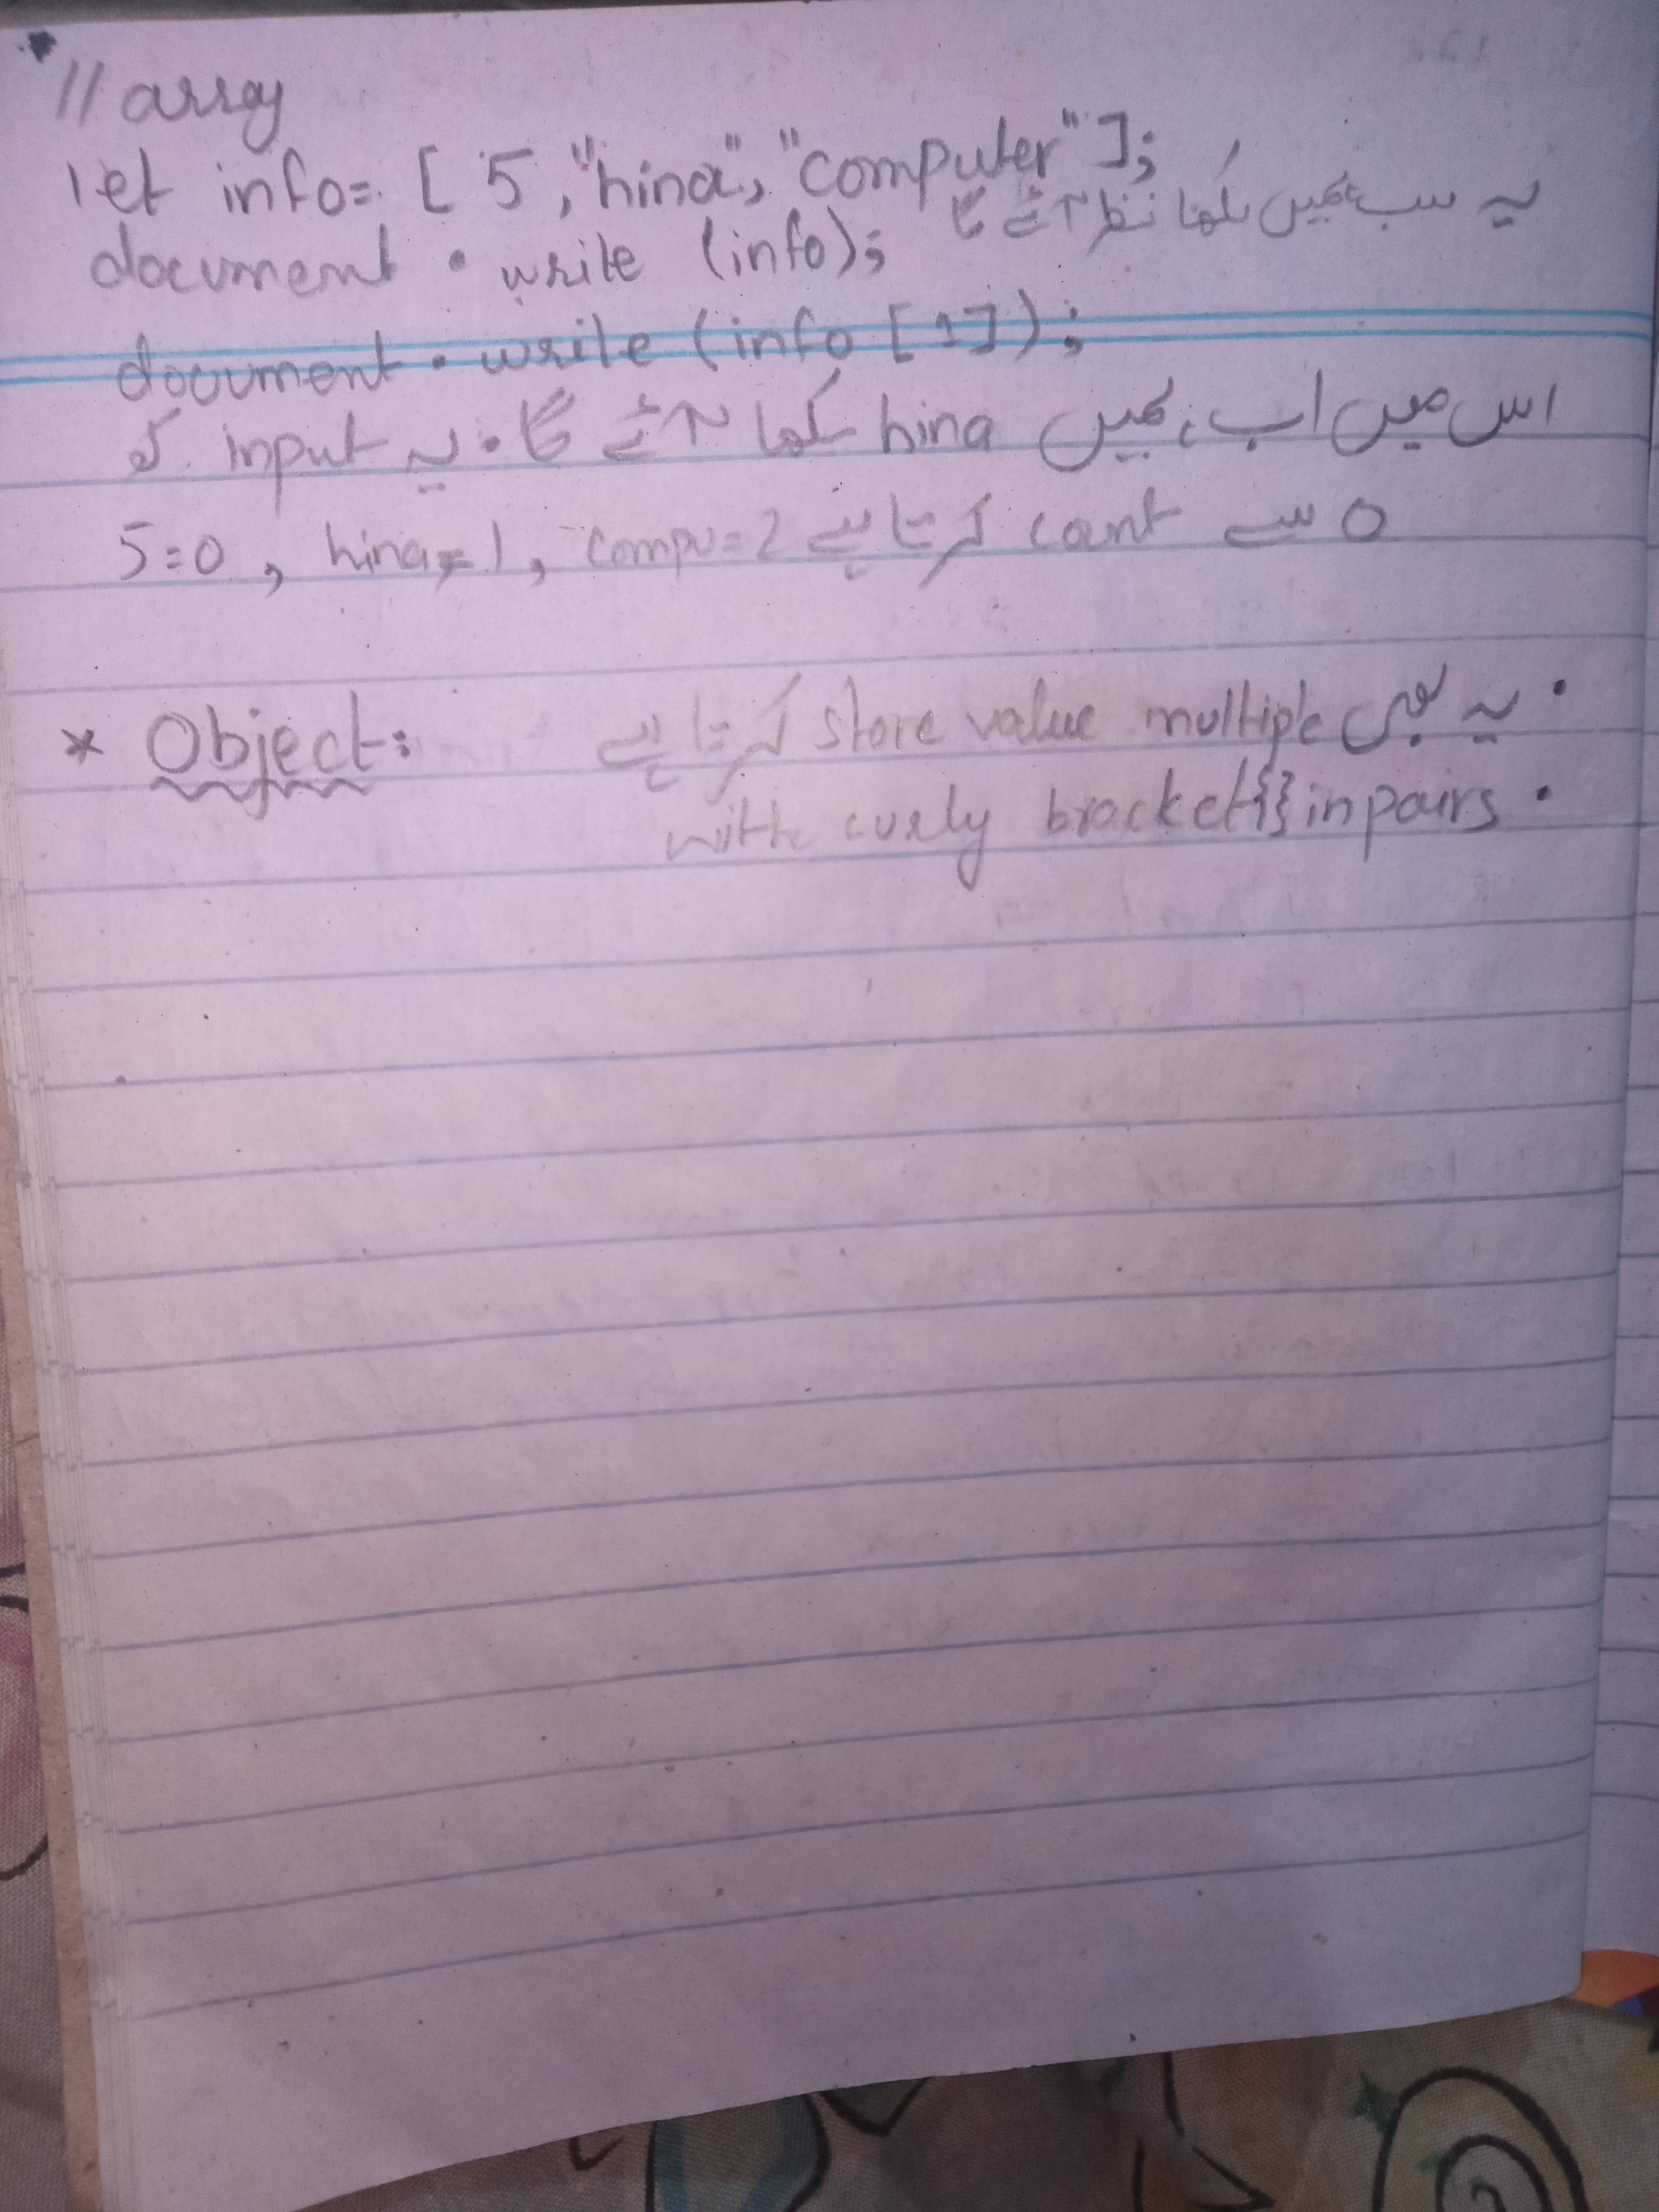 // array
let info= [ 5 , "hina", "computer" ];
یہ سب ہمیں لکھا نظر آئے گا
document . write (info);
document . write (info [1]);
اس میں اب ہمیں hina لکھا آئے گا. یہ input کو
0 سے count کرتا ہے 5=0 , hina=1 , compu=2
* Object:
• یہ بھی multiple value store کرتا ہے
• with curly bracket{} in pairs